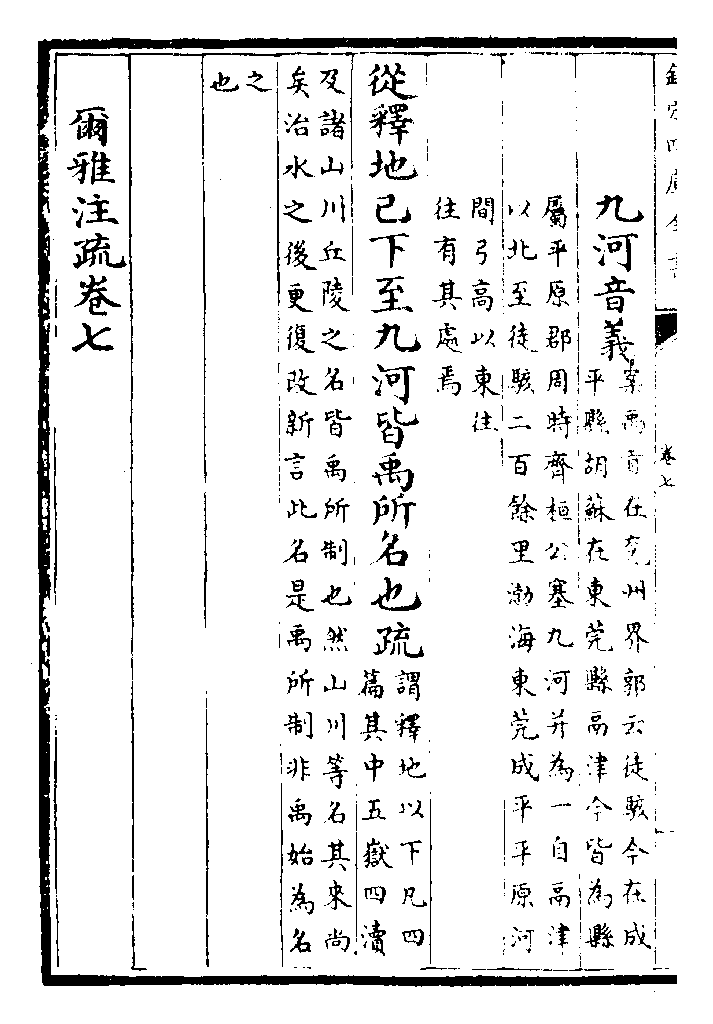 欽定四庫全書
卷七
九河音義
案禹貢在兗州界郭云徒駭今在成
平縣胡蘇在東莞縣鬲津今皆為縣
屬平原郡周時齊桓公塞九河并為一自鬲津
以北至徒駭二百餘里渤海東莞成平平原河
間弓高以東往
往有其處焉
從釋地已下至九河皆禹所名也疏
謂釋地以下凡四
篇其中五嶽四瀆
及諸山川丘陵之名皆禹所制也然山川等名其來尚
矣治水之後更復改新言此名是禹所制非禹始為名
之
也
爾雅注疏卷七